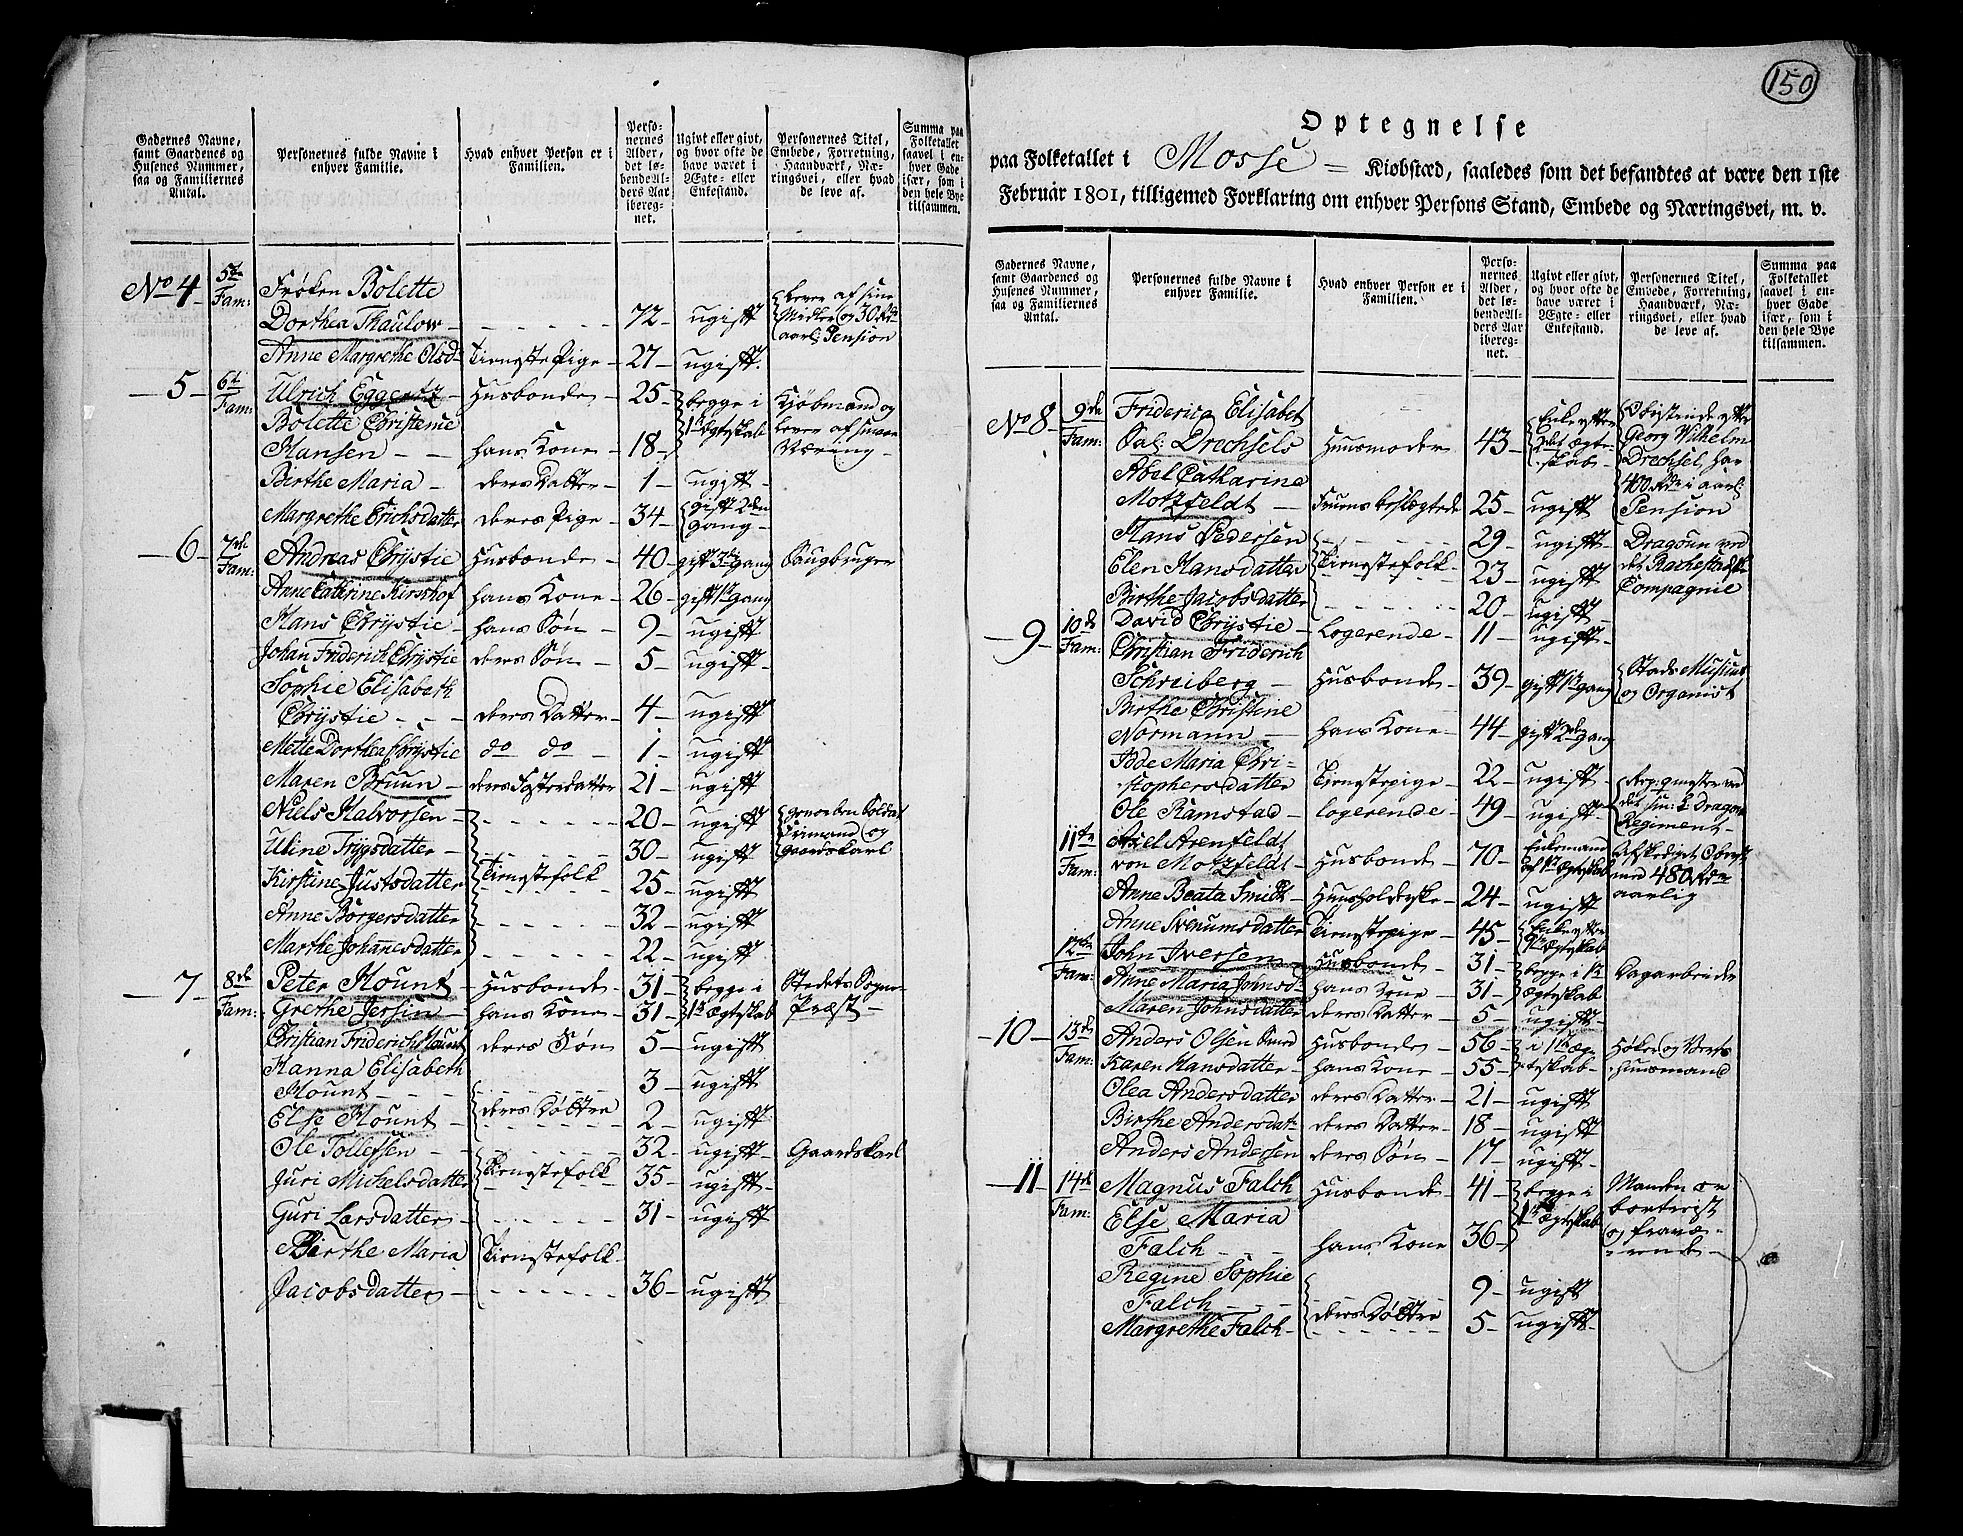 150
Gadernes Navne, samt Gaardenes og Husenes Nummer, saa og Familiernes Antal.
Personernes fulde Navne i enhver Familie.
Hvad enhver Person er i Familien.
Personernes Alder, det løbendeAlders Aar iberegnet.
Ugivt eller givt, og hvor ofte de have været i Ægte- eller Enkestand.
Personernes Titel, Embede, Forretning, Haandværk, Næringsvei, eller hvad de leve af.
Summa paa Folketallet saavel i enhver Gade især, som i den hele Bye tilsammen.
No 4 5te Fam: Frøken Bolette
Dorthea Thaulow - 72 - ugift Lever af sine Midler og 30 Rd aarl: Pension
Anne Margrethe Olsd - Tienestepige - 27 - ugift
- 5 - 6t Fam: Ulrich Eggertz - Husbonde - 25 - begge i 1t Ægteskab Kjøbmand og lever af sin Næring -
Bolette Christence
Hansen - - hans Kone - 18 -
Birthe Maria - deres Datter - 1 - ugift -
Margrethe Erichsdatter deres Pige - 34 - gift 2den gang -
- 6 - 7de Fam: Andreas Chrystie Husbonde - 40 - gift 3die gang Saugbruger
Anne Catrine Kirsthof hans Kone - 26 - gift 1t gang
Hans Chrystie - hans Søn - 9 - ugift -
Johan Friderich Chrystie deres Søn - 5 - ugift -
Sophie Elisabeth
Chrystie - - - deres Datter - 4 - ugift
Mette Dorthea Chrystie do do - 1 - ugift
Maren Bruun - deres Søsterdatter 21 - ugift
Niels Halvorsen - 20 - ugift - Soldat og Gaardskarl
Uline Trygsdatter - 30 - ugift -
Kirstine Justsdatter Tienestefolk 25 - ugift
Anne Borgersdatter 32 - ugift
Marthe Johannesdatter 22 - ugift
- 7 - 8de Fam: Peter Hount - Husbonde - 31 - begge i 1t Ægteskab Stedets Sogne-Præst -
Grethe Jersin - hans Kone - 31 -
Christian Friderich Hount deres Søn 5 - ugift
Hanna Elisabeth
Hount - - - 3 - ugift
Else Hount - deres Døttre 2 - ugift
Ole Tollefsen - - 32 - ugift - Gaardskarl
Juri Michelsdatter Tienestefolk 35 - ugift -
Guri Larsdatter - 31 - ugift -
Birthe Maria Tienestefolk
Jacobsdatter - 36 - ugift
Optegnelse
paa Folketallet i Mosse = Kiøbstæd, saaledes som det befandtes at være den 1ste
Februar 1801, tilligemed Forklaring om enhver Persons Stand, Embede og Næringsvei, m. v.
Gadernes Navne, samt Gaardenes og Husenes Nummer, saa og Familiernes Antal.
Personernes fulde Navne i enhver Familie.
Hvad enhver Person er i Familien.
Personernes Alder, det løbendeAlders Aar iberegnet.
Ugivt eller givt, og hvor ofte de have været i Ægte- eller Enkestand.
Personernes Titel, Embede, Forretning, Haandværk, Næringsvei, eller hvad de leve af.
Summa paa Folketallet saavel i enhver Gade især, som i den hele Bye tilsammen.
No 8 - 9de Fam: Friderica Elisabet
Sal: Drechsels Huusmoder 43 - Enke efter Ægteskab - efter Georg Wilhelm Drechsel, har 400 Rd i aarl: Pension
Abel Catharine
Motzfeldt - Fruens beslægtede 25 - ugift
Hans Pedersen 29 - ugift - Dragoun ved det Compagnie
Elen Hansdatter Tienestefolk - 23 - ugift
Birthe Jacobsdatter 20 - ugift -
- 9 - 10de Fam: David Chrystie - Logerende - 11 - ugift -
Christian Friderich
Schreiberg - Husbonde - 39 - gift 1t gang Stads Musicus og Organist
Birthe Christine
Normann - hans Kone - 44 - gift 2de gang
Bode Maria Chri-
stophersdatter Tienestepige 22 - ugift -
Ole Ramstad - logerende - 49 - ugift - Dragon Regiment -
11te Fam: Axel Arenfeldt
von Motzfeldt - Husbonde - 70 - Enkemand af 1t Ægteskab afskediget Oberst med 480 Rdr aarlig
Anne Beata Smidt - Huusholderske - 24 - ugift
Anne Svenumsdatter Tienestepige - 45 - Enke efter 1te Ægteskab
12te Fam: John Iversen - Husbonde - 31 - begge i 1t Ægteskab Dagarbeider
Anne Maria Johnsd - hans Kone - 31 -
Maren Johnsdatter deres Datter - 5 - ugift -
- 10 - 13de Fam: Anders Olsen Husbonde - 56 - i 1te Ægteskab - Høker og Vertshuusmand
Karen Hansdatter - hans Kone - 55 -
Olea Andersdatter deres Datter - 21 - ugift
Birthe Andersdat: deres Datter - 18 - ugift
Anders Andersen deres Søn - 17 - ugift -
- 11 - 14de Fam: Magnus Falch Husbonde - 41 - begge i 1t Ægteskab Manden er bortreist og fraværende -
Else Maria
Falch - - - hans Kone 36 -
Regine Sophie
Falch - - 9 - ugift
Margrethe Falch - deres Døttre 5 - ugift -